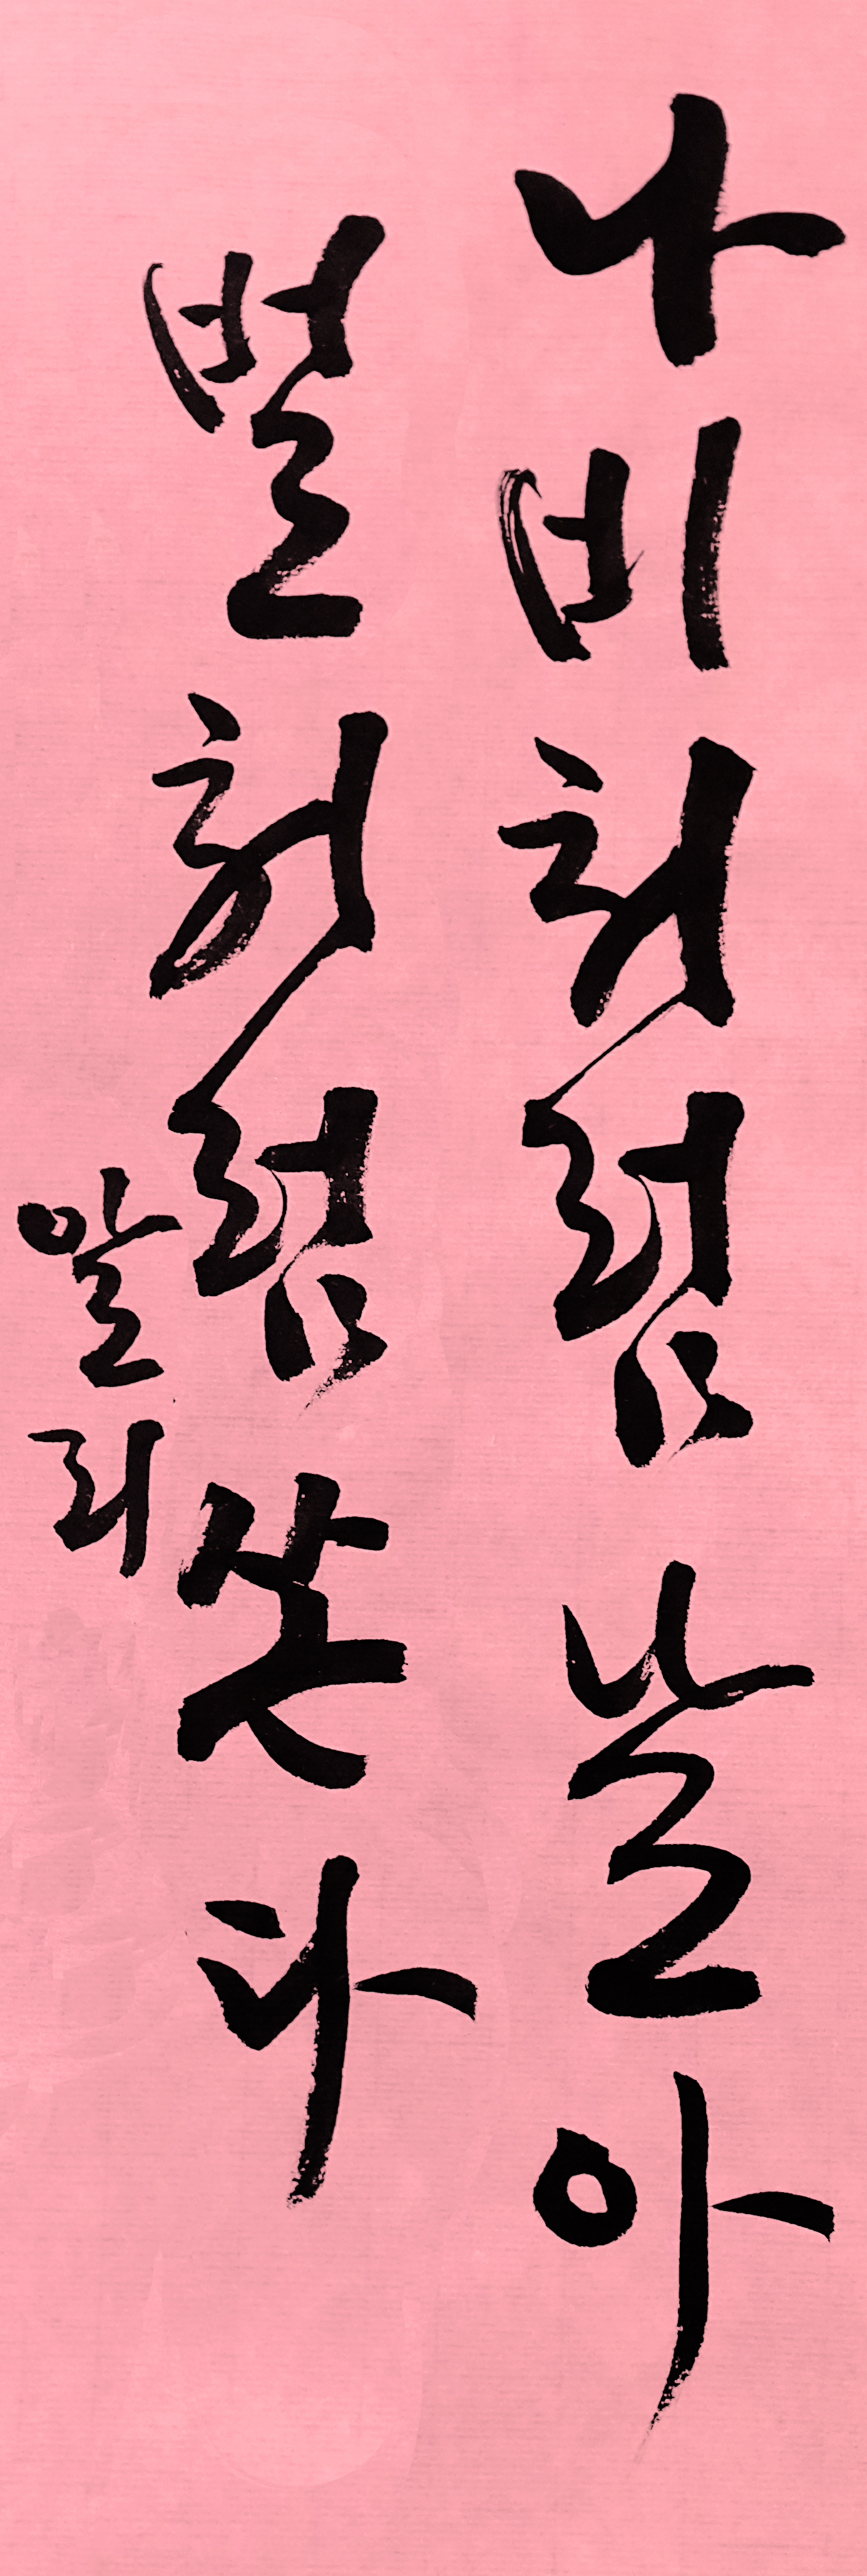 나비처럼 날아
벌처럼 쏜다
알리